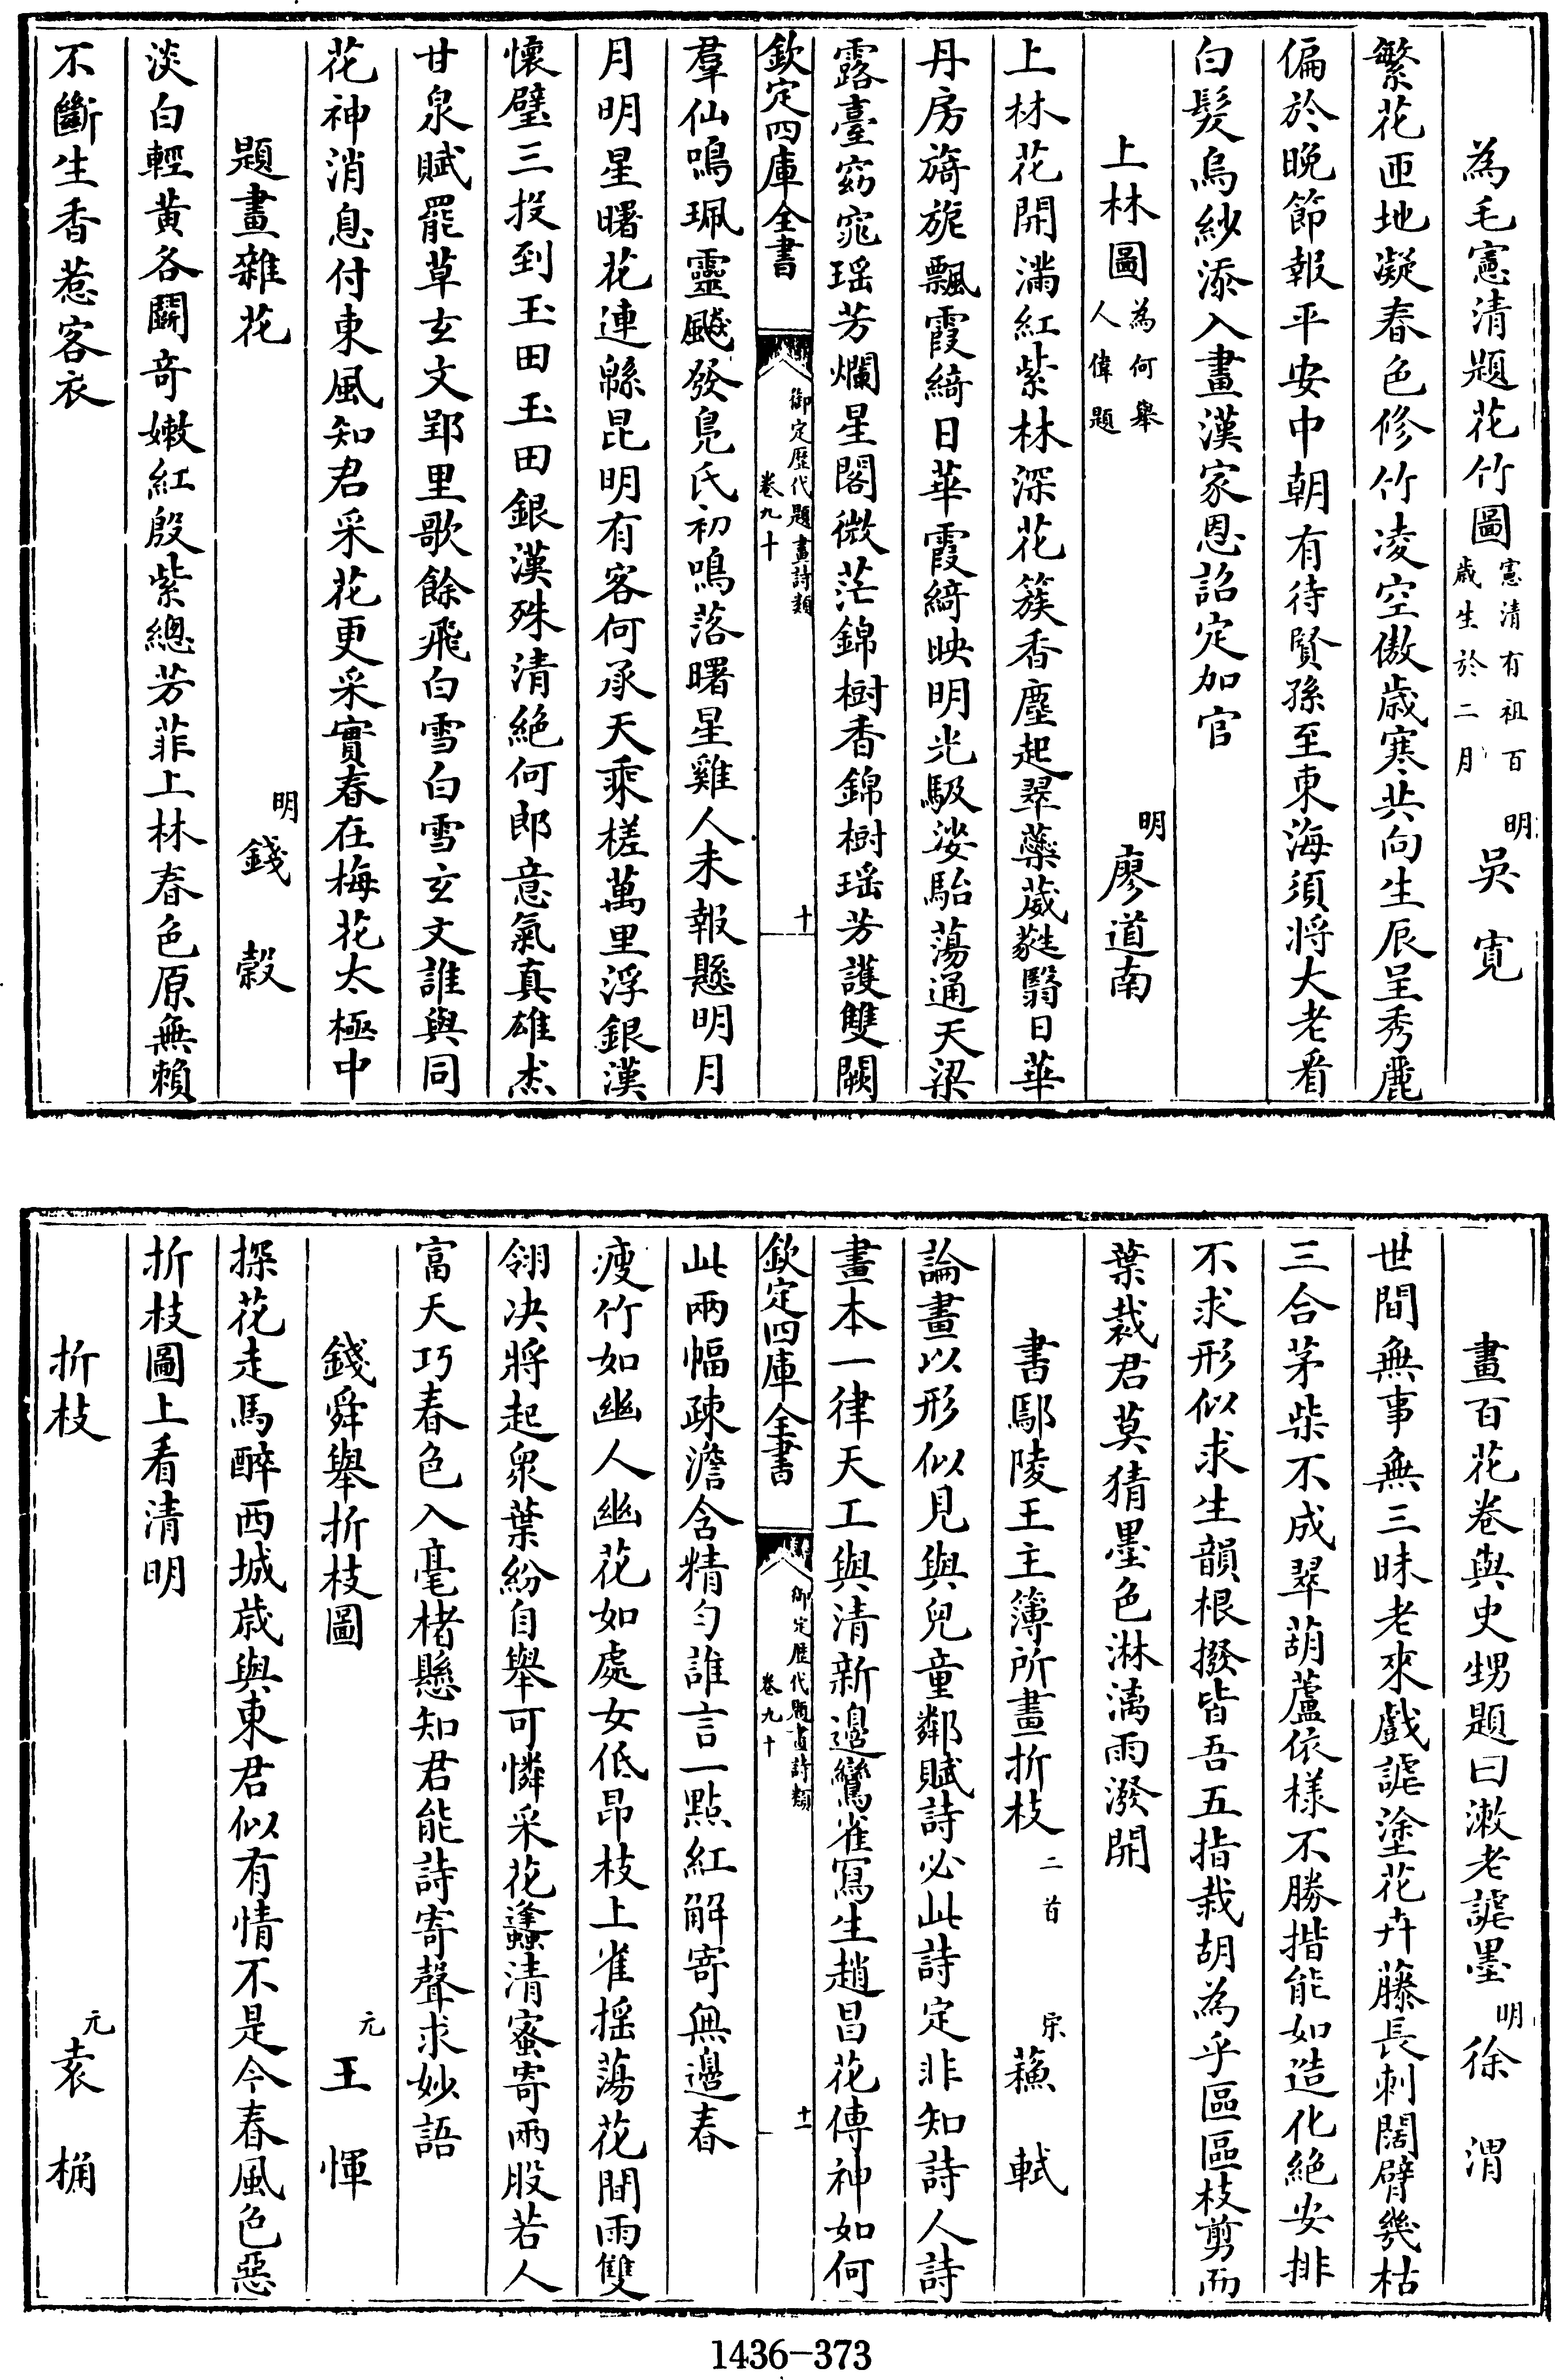 為毛憲清題花竹圖憲清有祖百歲生於二月 明吳寬
繁花匝地凝春色修竹凌空傲歲寒共向生辰呈秀麗
偏於晚節報平安中朝有待賢孫至東海須將大老看
白髮烏紗添入畫漢家恩詔定加官
上林圖為何舉人偉題 明廖道南
上林花開滿紅紫林深花簇香塵起翠蘂葳蕤翳日華
丹房旖旎飄霞綺日華霞綺映明光馺娑駘蕩通天梁
露臺窈窕瑶芳爛星閣微茫錦樹香錦樹瑶芳護雙闕
欽定四庫全書 御定歷代題畫詩類卷九十 十
羣仙鳴珮靈飈發鳧氏初鳴落曙星雞人未報懸明月
月明星曙花連緜昆明有客何承天乘槎萬里浮銀漢
懷璧三投到玉田玉田銀漢殊清絶何郎意氣真雄杰
甘泉賦罷草玄文郢里歌餘飛白雪白雪玄文誰與同
花神消息付東風知君采花更采實春在梅花太極中
題畫雜花 明錢穀
淡白輕黃各鬬奇嫩紅殷紫總芳菲上林春色原無賴
不斷生香惹客衣
畫百花卷與史甥題曰漱老謔墨 明徐渭
世間無事無三昧老來戲謔塗花卉藤長刺闊臂幾枯
三合茅柴不成翠葫蘆依樣不勝揩能如造化絶安排
不求形似求生韻根撥皆吾五指栽胡為乎區區枝剪而
葉裁君莫猜墨色淋漓雨潑開
書鄢陵王主簿所畫折枝二首 宋蘇軾
論畫以形似見與兒童鄰賦詩必此詩定非知詩人詩
畫本一律天工與清新邊鸞雀寫生趙昌花傳神如何
欽定四庫全書 御定歷代題畫詩類卷九十 十一
此兩幅疎澹含精勻誰言一點紅解寄無邊春
瘦竹如幽人幽花如處女低昂枝上雀摇蕩花間雨雙
翎決將起衆葉紛自舉可憐采花蠭清蜜寄兩股若人
富天巧春色入毫楮懸知君能詩寄聲求妙語
錢舜舉折枝圖 元王惲
探花走馬醉西城歲與東君似有情不是今春風色惡
折枝圖上看清明
折枝 元袁桷
1436-373